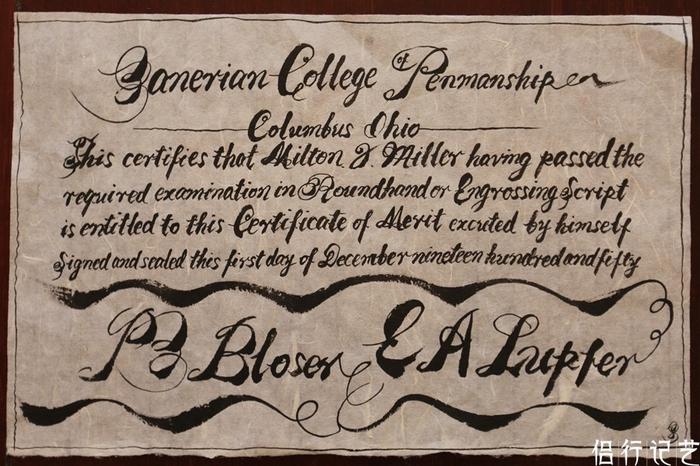 Zanerian College of Penmanship
Columbus Ohio
This certifies that Milton J. Miller having passed the
required examination in Roundhand or Engrossing Script
is entitled to this Certificate of Merit excuted by himself
Signed and sealed this first day of December nineteen hundred and fifty
PZ Bloser E A Lupfer
侣行记艺